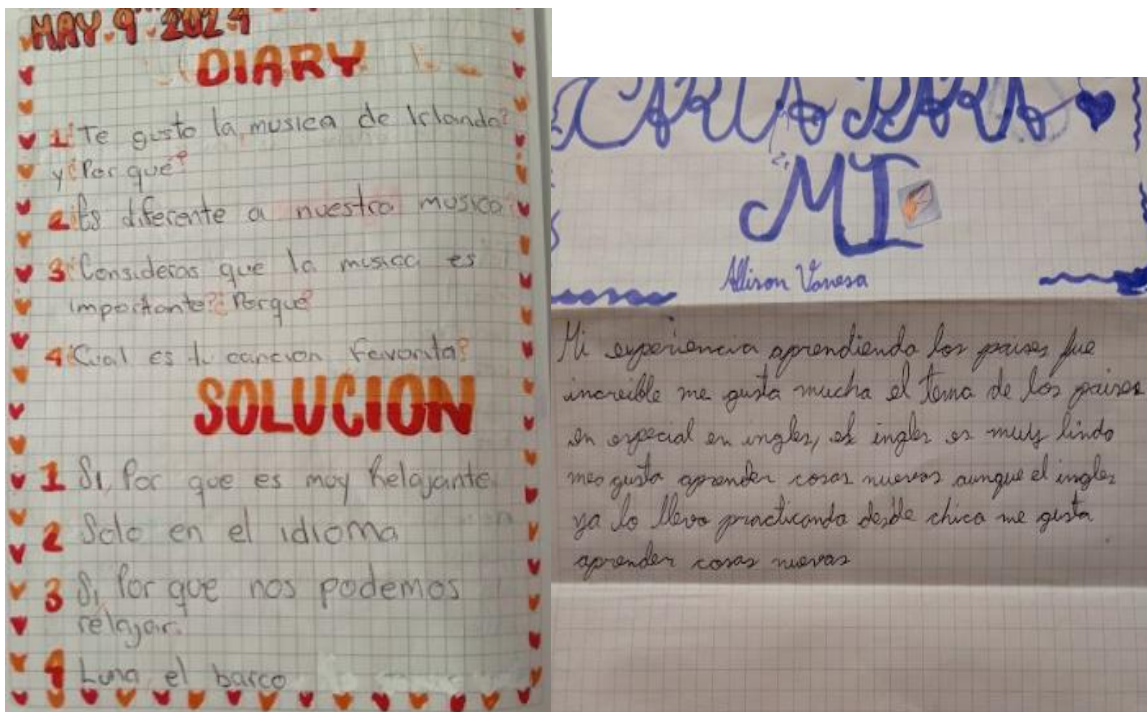 MAY 9 2024
DIARY
1 ¿Te gusto la musica de Irlanda?
y ¿Por qué?
2 ¿Es diferente a nuestra musica?
3 ¿Consideras que la musica es
importante? ¿Porque?
4 ¿Cual es tu cancion favorita?
SOLUCION
1 Si, Por que es muy Relajante
2 Solo en el idioma
3 Si, Por que nos podemos
relajar.
4 Luna el barco
CARTA PARA
MI
Allison Vanesa
Mi experiencia aprendiendo los paises fue
increible me gusta mucha el tema de los paises
en especial en ingles, el ingles es muy lindo
me gusta aprender cosas nuevas aunque el ingles
ya lo llevo practicando desde chica me gusta
aprender cosas nuevas